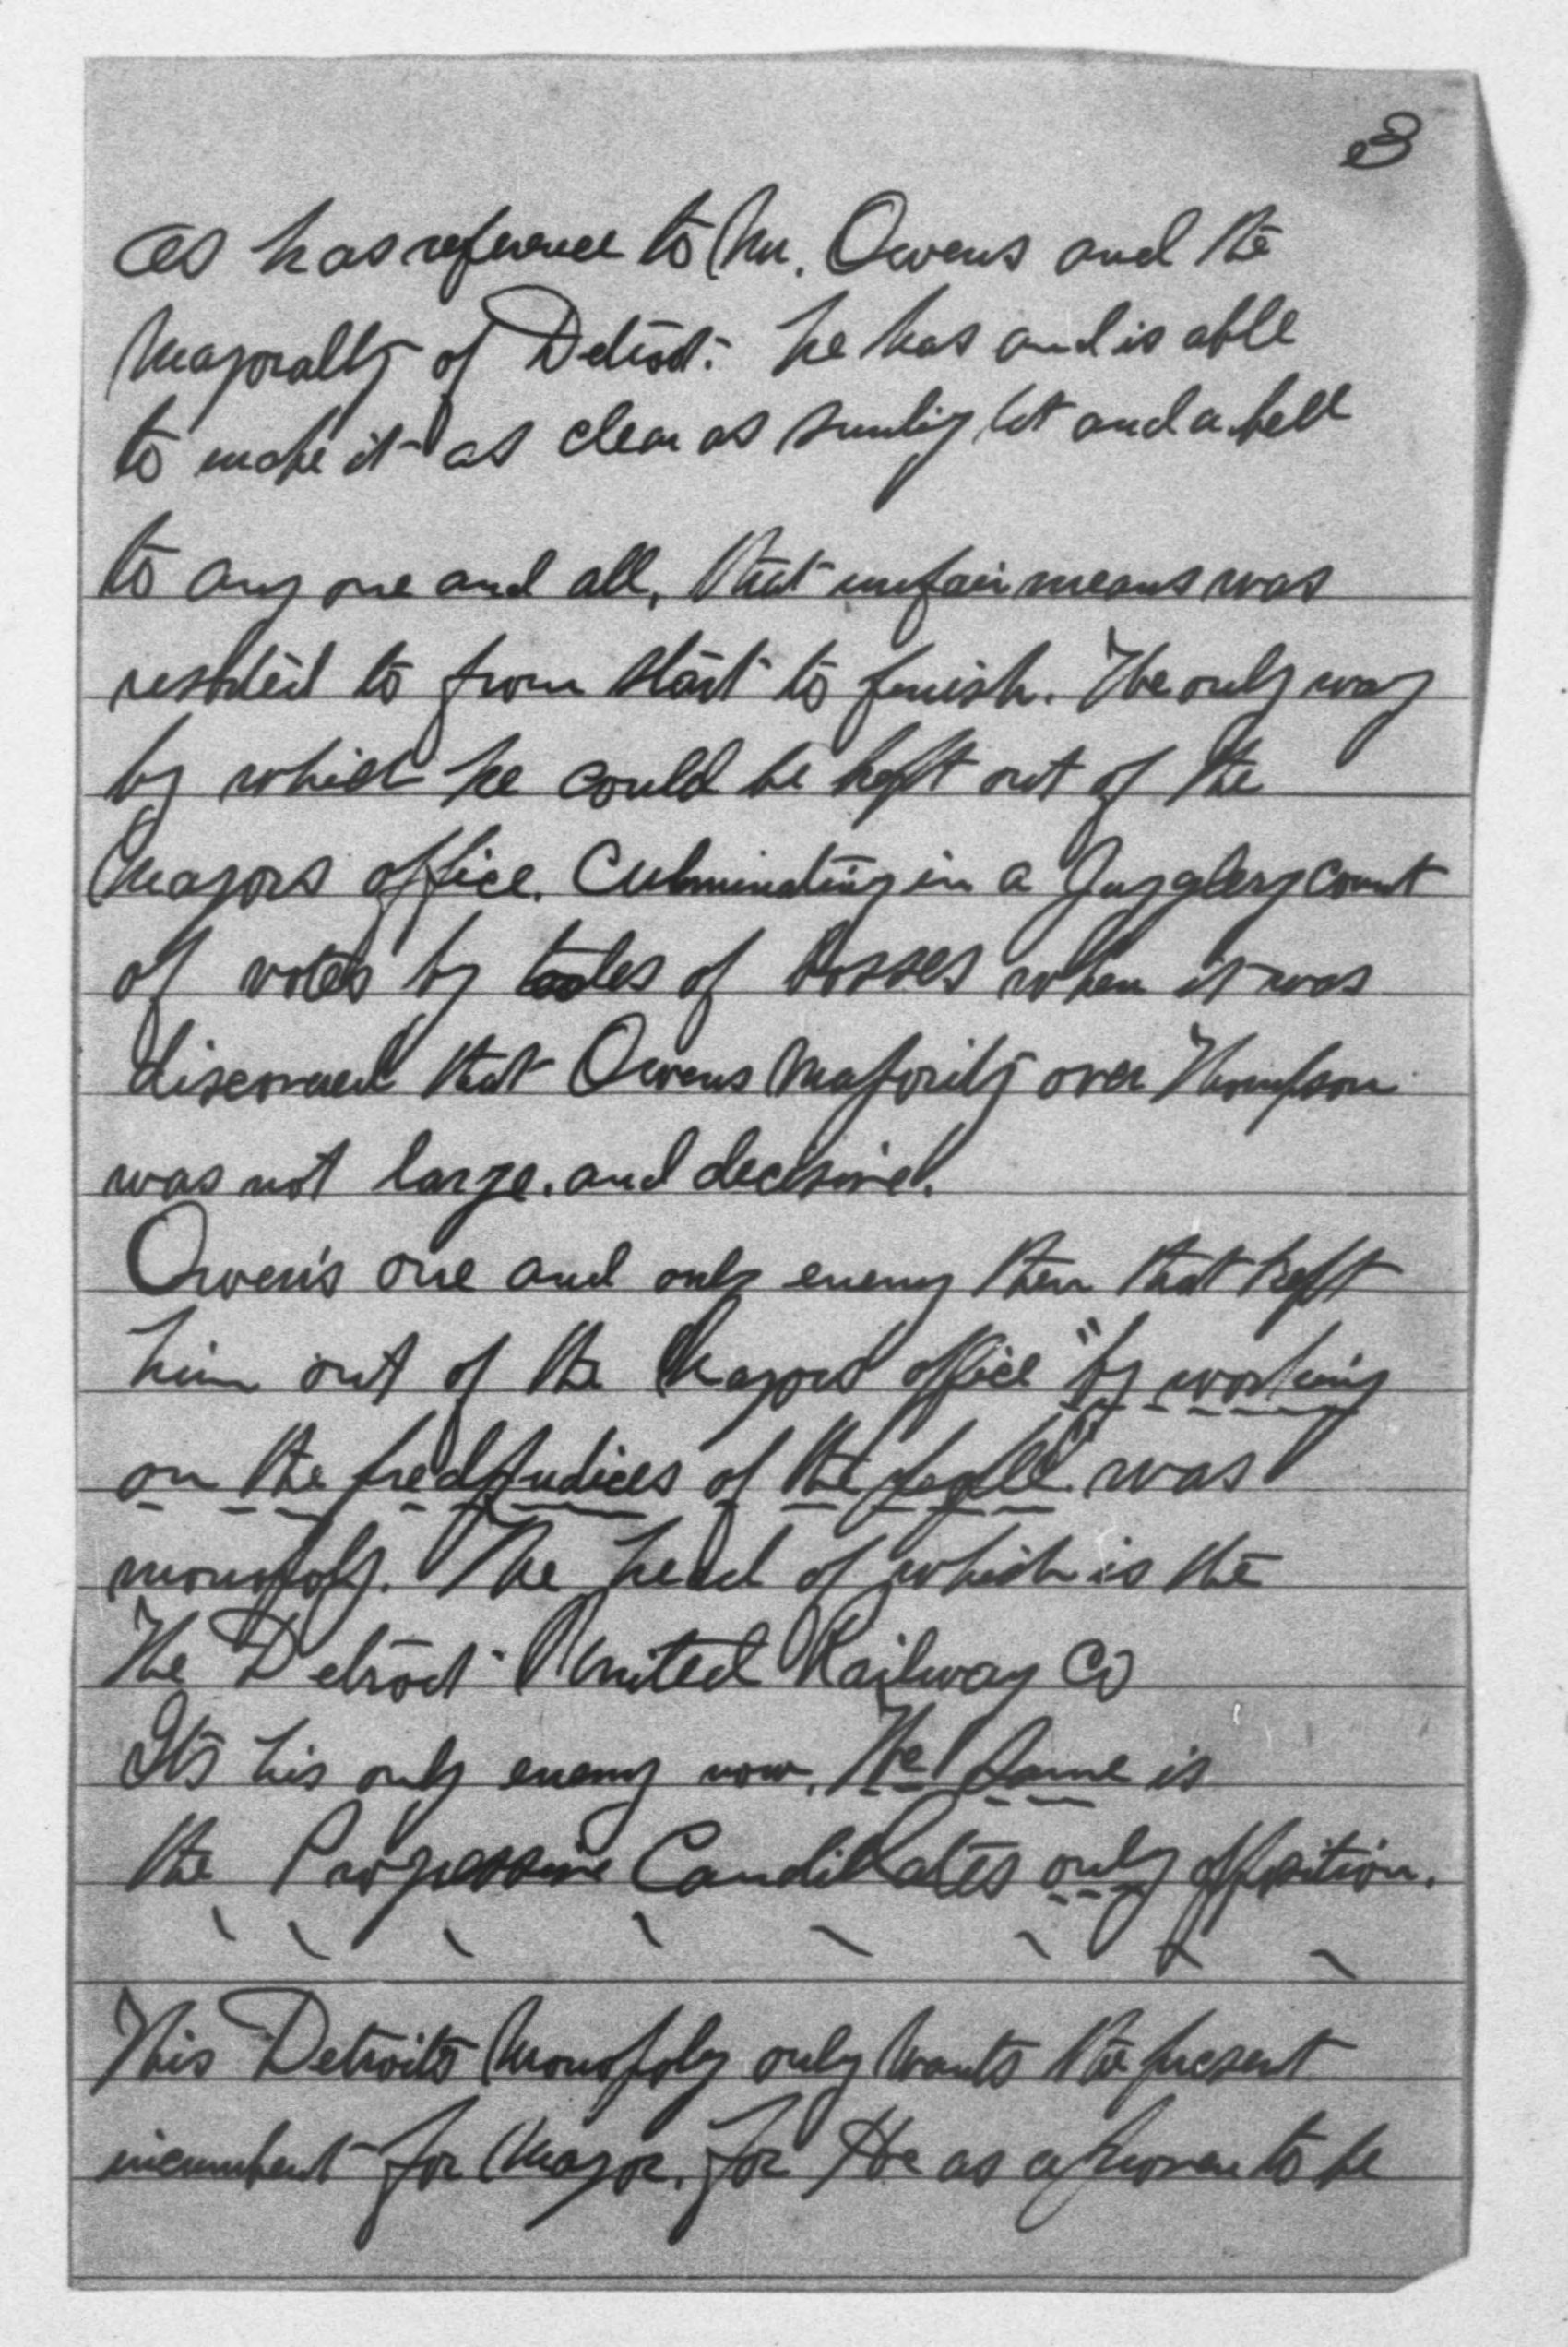 3
as has reference to Mr. Owens and the
Mayoralty of Detroit. he has and is able
to make it as clear as sunlight and a bell
to any one and all, that unfair means was
resorted to from start to finish. The only way
by which he could be kept out of the
Mayors office. Culminating in a Jugglery count
of votes by tools of bosses when it was
discovered that Owens Majority over Thompson
was not large. and decisive.
Owen's one and only enemy then that kept
him out of the Mayors office "by working
on the predjudices of the people" was
monopoly. The head of which is the
The Detroit United Railway Co
Its his only enemy now. The same is
the Progressive Candidates only opposition.
This Detroits Monopoly only wants the present
incumbent for Mayor. for He as a proven to be